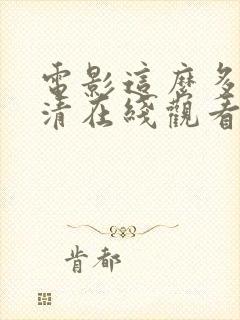 電影這麼多
清在綫觀看
肯都